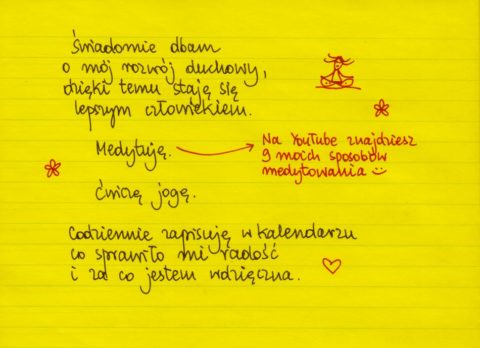 Świadomie dbam
o mój rozwój duchowy,
dzięki temu staję się
lepszym człowiekiem.
Medytuję.
Na YouTube znajdziesz
9 moich sposobów
medytowania
Ćwiczę jogę.
Codziennie zapisuję w kalendarzu
co sprawiło mi radość
i za co jestem wdzięczna.